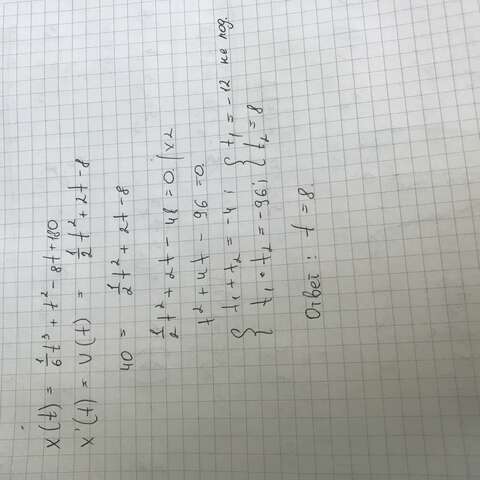 x(t) = 1/6 t³ + t² - 8t + 180
x'(t) = v(t) = 1/2 t² + 2t - 8
40 = 1/2 t² + 2t - 8
1/2 t² + 2t - 48 = 0. | x2
t² + 4t - 96 = 0.
{ t₁ + t₂ = -4 ; { t₁ = -12 не под.
{ t₁ • t₂ = -96; { t₂ = 8
Ответ: t = 8.